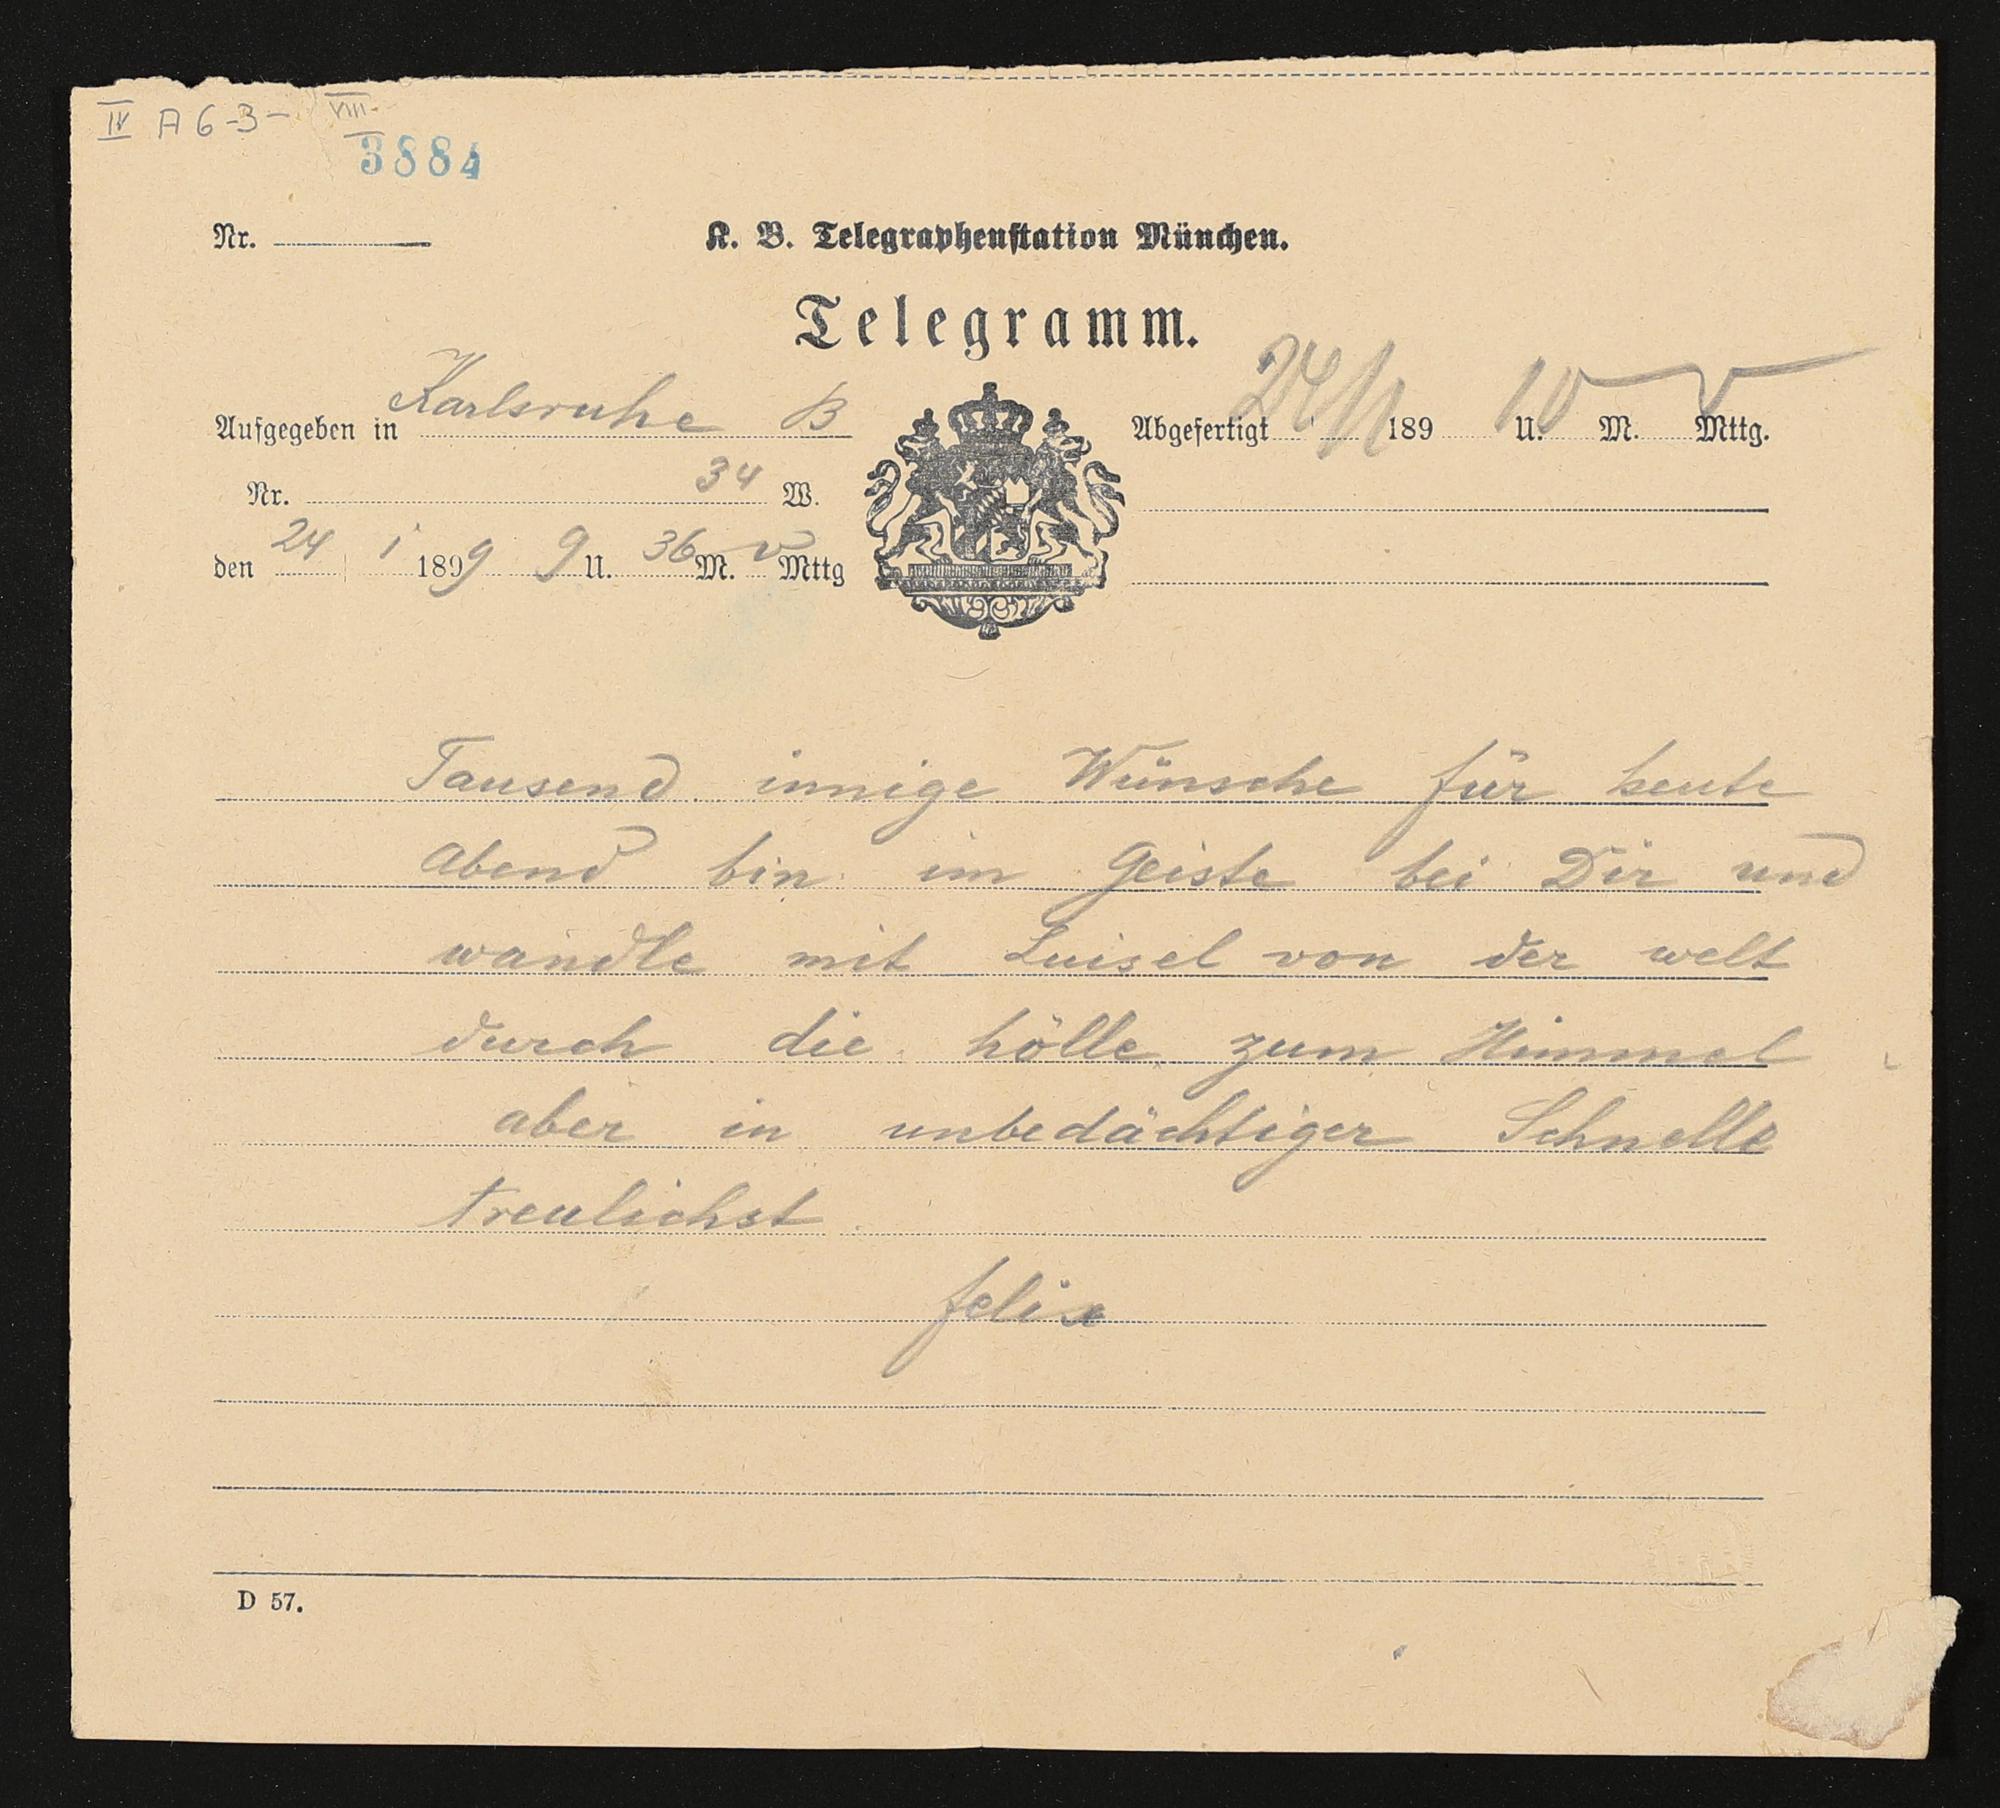 IV A 6-3- VIII
3884
Nr.
K. B. Telegraphenstation München.
Telegramm.
Aufgegeben in Karlsruhe B
Abgefertigt 24/1 189 10 U. M. V Mttg.
Nr. 34 W.
den 24 1 1899 9 U. 36 M. v Mttg
Tausend innige Wünsche für heute
abend bin im Geiste bei Dir und
wandle mit Luisel von der welt
durch die hölle zum Himmel
aber in unbedächtiger Schnelle
treulichst
felix
D 57.